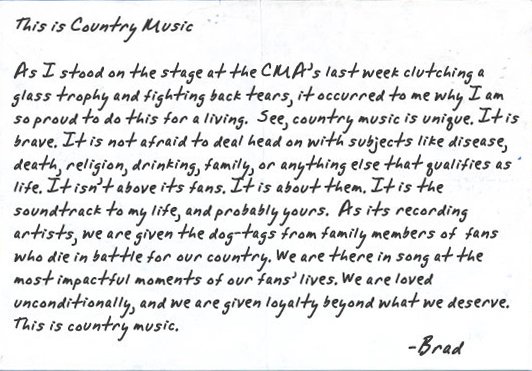 This is Country Music
As I stood on the stage at the CMA's last week clutching a
glass trophy and fighting back tears, it occurred to me why I am
so proud to do this for a living. See, country music is unique. It is
brave. It is not afraid to deal head on with subjects like disease,
death, religion, drinking, family, or anything else that qualifies as
life. It isn't above its fans. It is about them. It is the
soundtrack to my life, and probably yours. As its recording
artists, we are given the dog-tags from family members of fans
who die in battle for our country. We are there in song at the
most impactful moments of our fans' lives. We are loved
unconditionally, and we are given loyalty beyond what we deserve.
This is country music.
-Brad